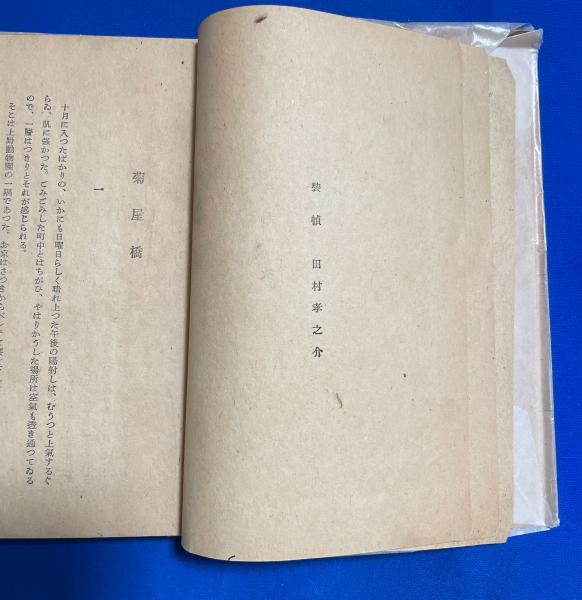 裝幀　田村孝之介
菊屋橋
一
十月に入つたばかりの、いかにも日曜日らしく晴れ上つた午後の陽射しは、むうつと上氣するぐ
らゐ、肌に強かつた。ごみごみした町中とはちがひ、やはりかうした場所は空氣も透き通つてゐる
ので、一層はつきりとそれが感じられる。
そこは上野動物園の一隅であつた。お京はさつきからベンチに